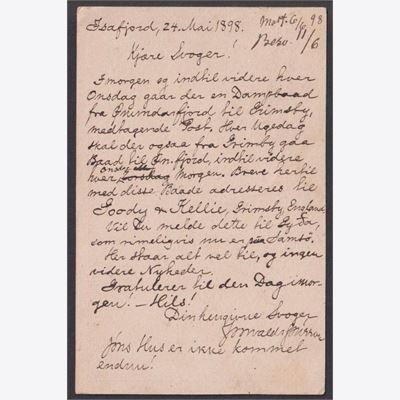 Isafjord, 24. Mai 1898.
Modt. 6/6 98
Besv. 11/6
Kjære Svoger!
I morgen og indtil videre hver
Onsdag gaar der en Dampbaad
fra Önundarfjord til Grimsby,
medtagende Post. Hver Ugedag
skal der ogsaa fra Grimsby gaa
Baad til Ön.fjord, indtil videre
hver Onsdag Morgen. Breve hertil
med disse Baade adresseres til
Goody & Kellie, Grimsby, England.
Vil Du melde dette til
som rimeligvis nu er Samsö.
Her staar alt vel til, og ingen
videre Nyheder.
Gratulerer til den Dag imor-
gen! — Hils!
Din hengivne Svoger
Jóns Hus er ikke kommet
endnu!